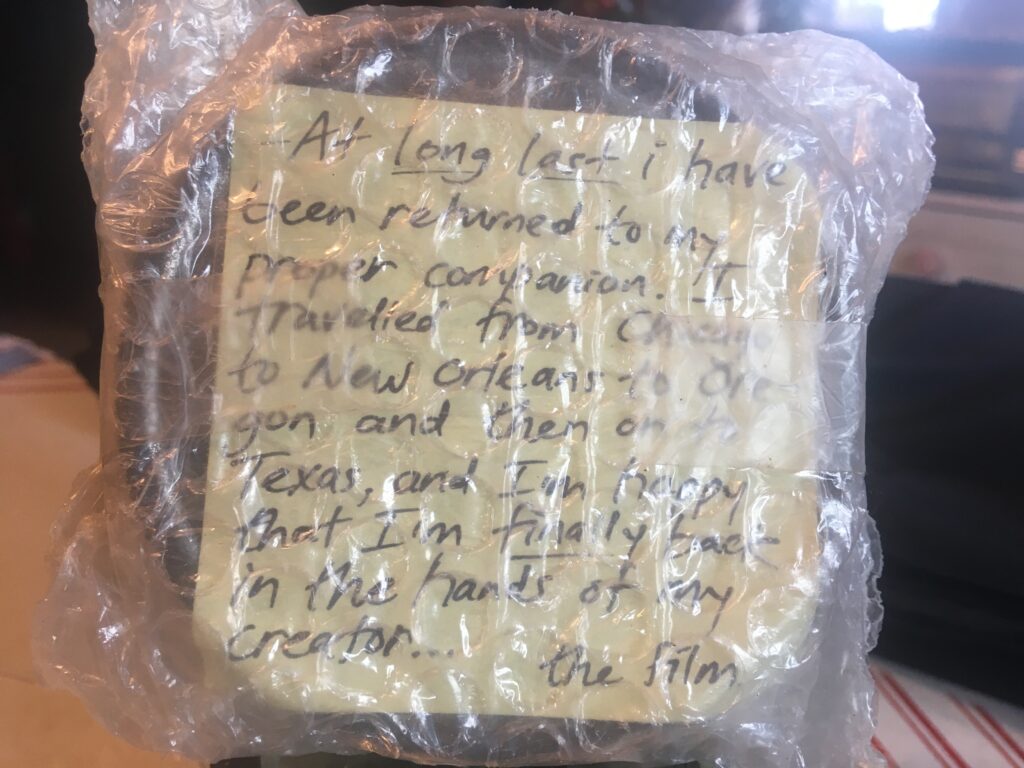 -At long last i have
been returned to my
proper companion. I
travelled from Chicago
to New Orleans to Ore
gon and then on to
Texas, and I'm happy
that I'm finally back
in the hands of my
creator...
the film